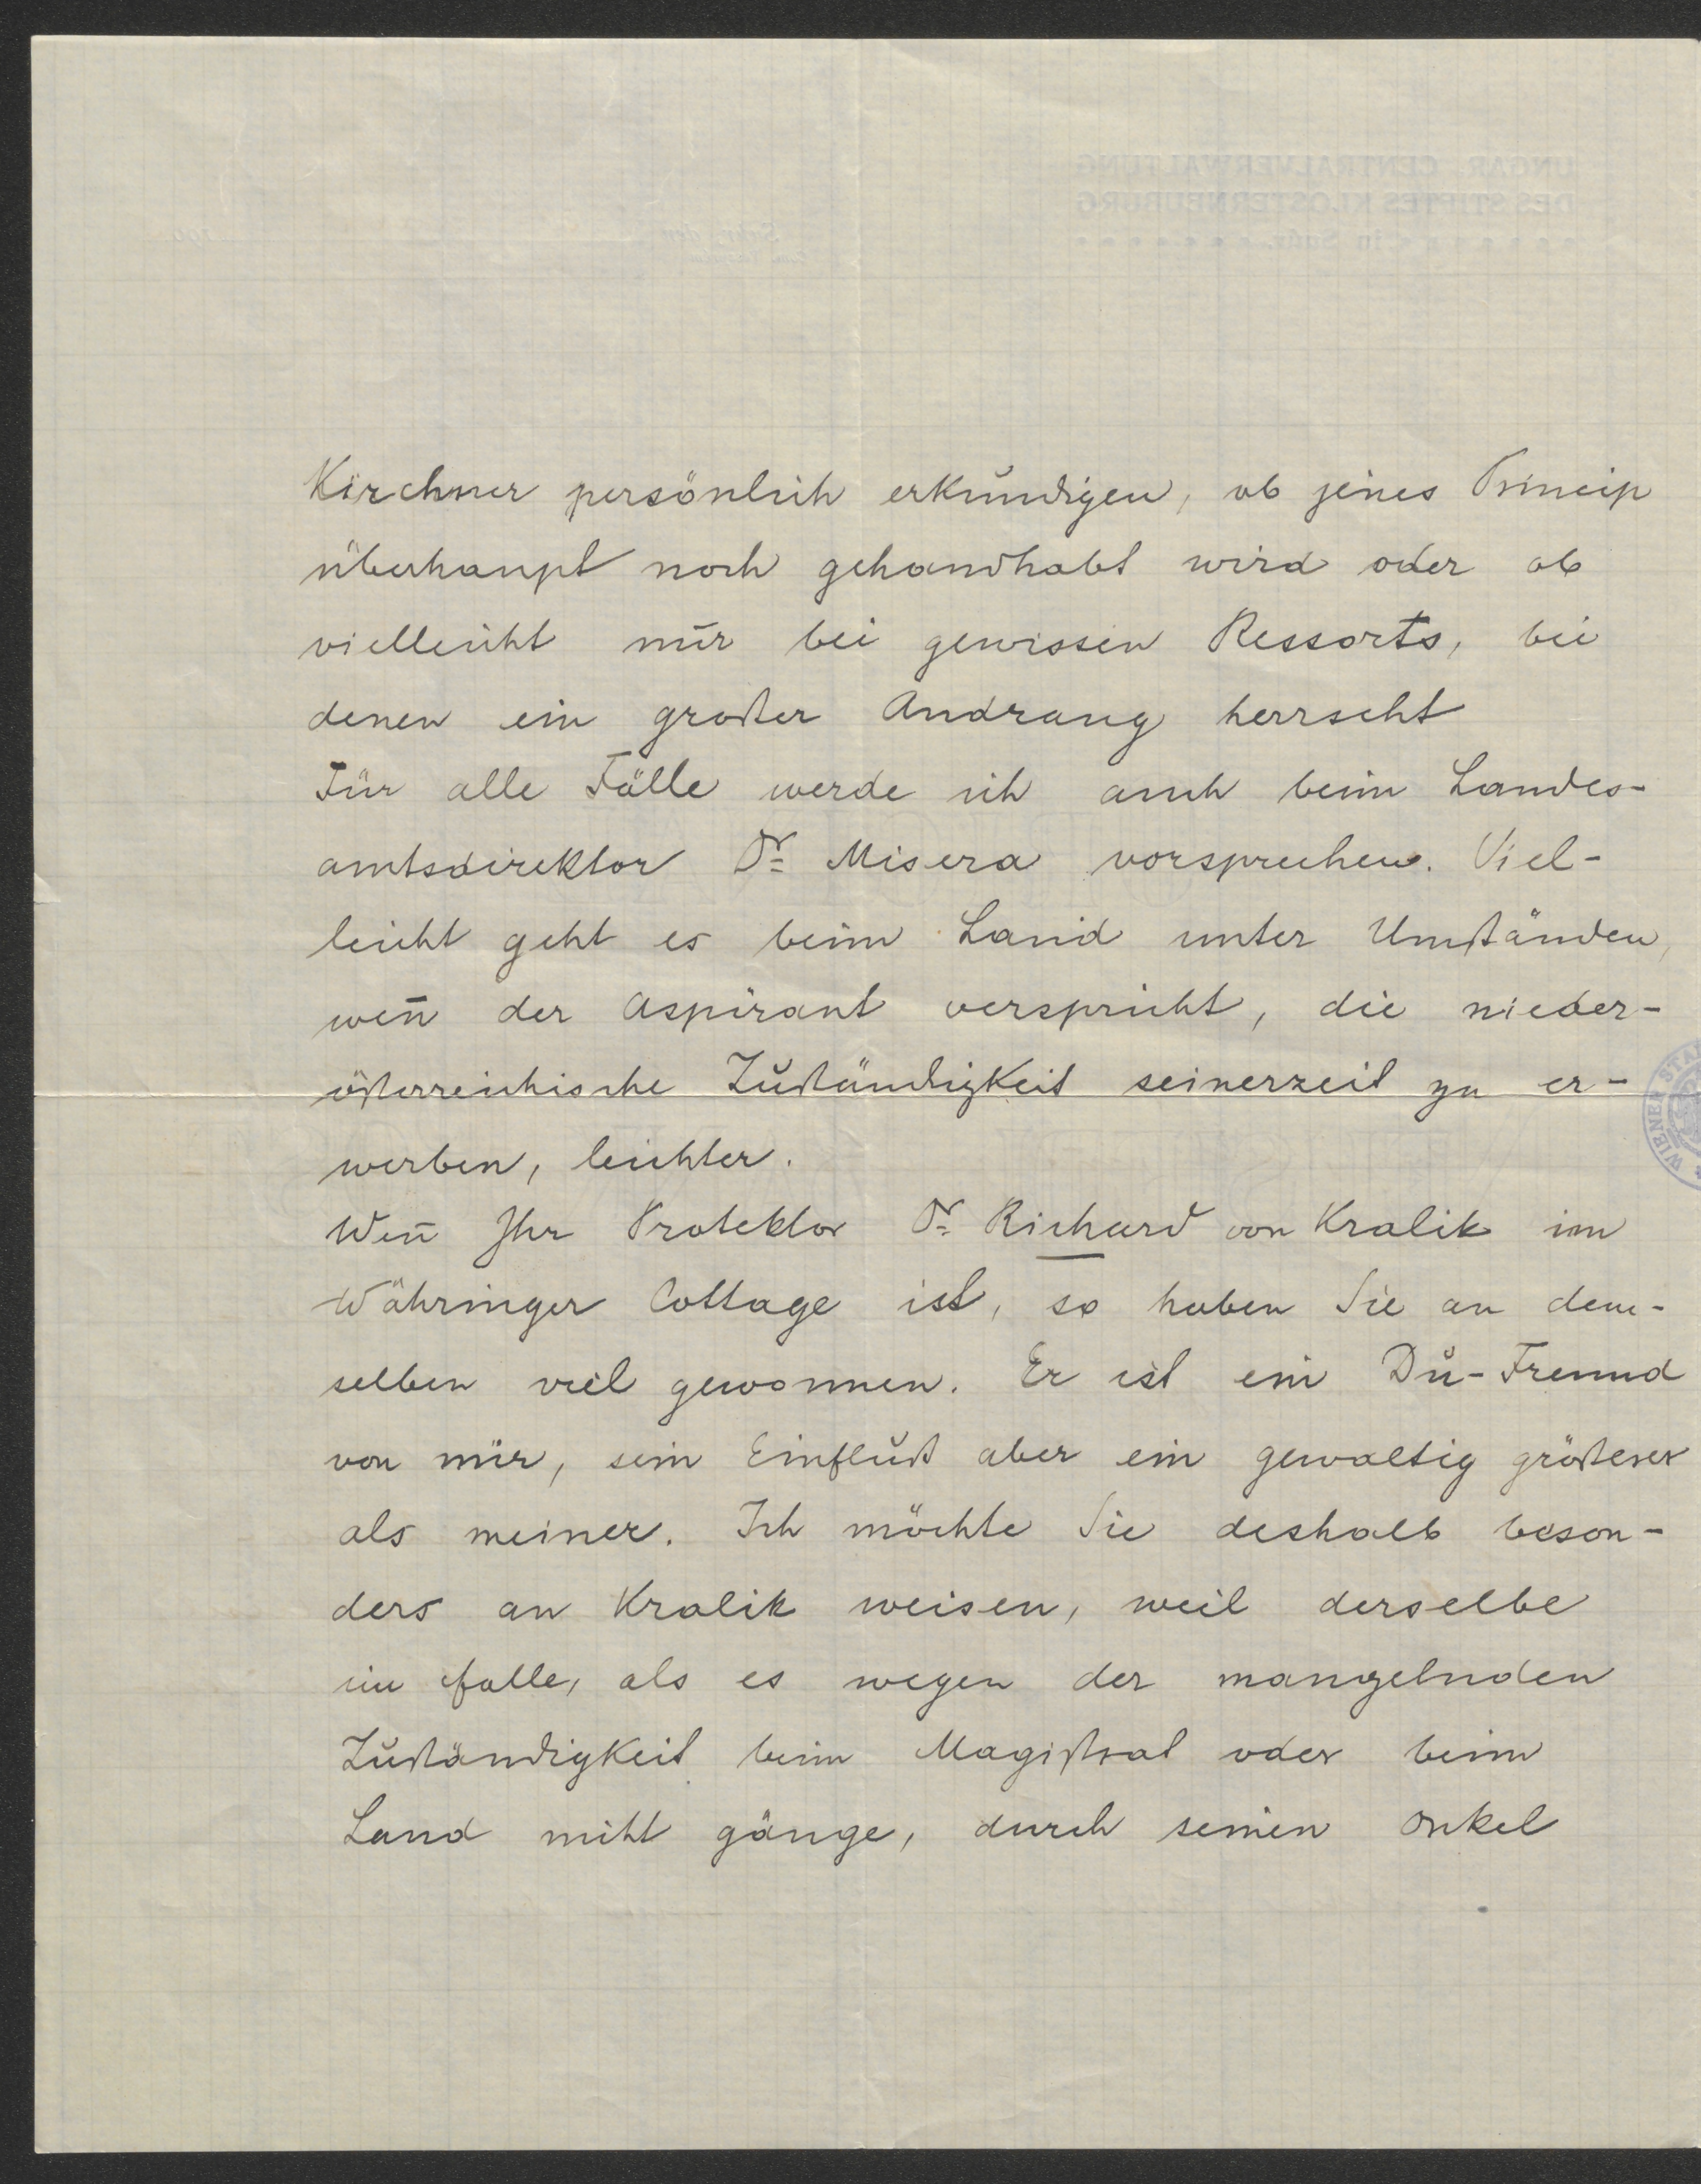 UNGAR. CENTRALVERWALTUNG
DES STIFTES KLOSTERNEUBURG
Kirchner persönlich erkundigen, ob jenes Princip
überhaupt noch gehandhabt wird oder ob
vielleicht nur bei gewissen Ressorts, bei
denen ein großer Andrang herrscht
Für alle Fälle werde ich auch beim Landes-
amtsdirektor Dr. Misera vorsprechen. Viel-
leicht geht es beim Land unter Umständen,
wen̄ der Aspirant verspricht, die nieder-
österreichische Zuständigkeit seinerzeit zu er-
werben, leichter.
Wen̄ Ihr Protektor Dr. Richard von Kralik im
Währinger Cottage ist, so haben Sie an dem-
selben viel gewonnen. Er ist ein Du-Freund
von mir, sein Einfluß aber ein gewaltig größerer
als meiner. Ich möchte Sie deshalb beson-
ders an Kralik weisen, weil derselbe
im Falle, als es wegen der mangelnden
Zuständigkeit beim Magistrat oder beim
Land nicht gänge, durch seinen Onkel
WIENER STA